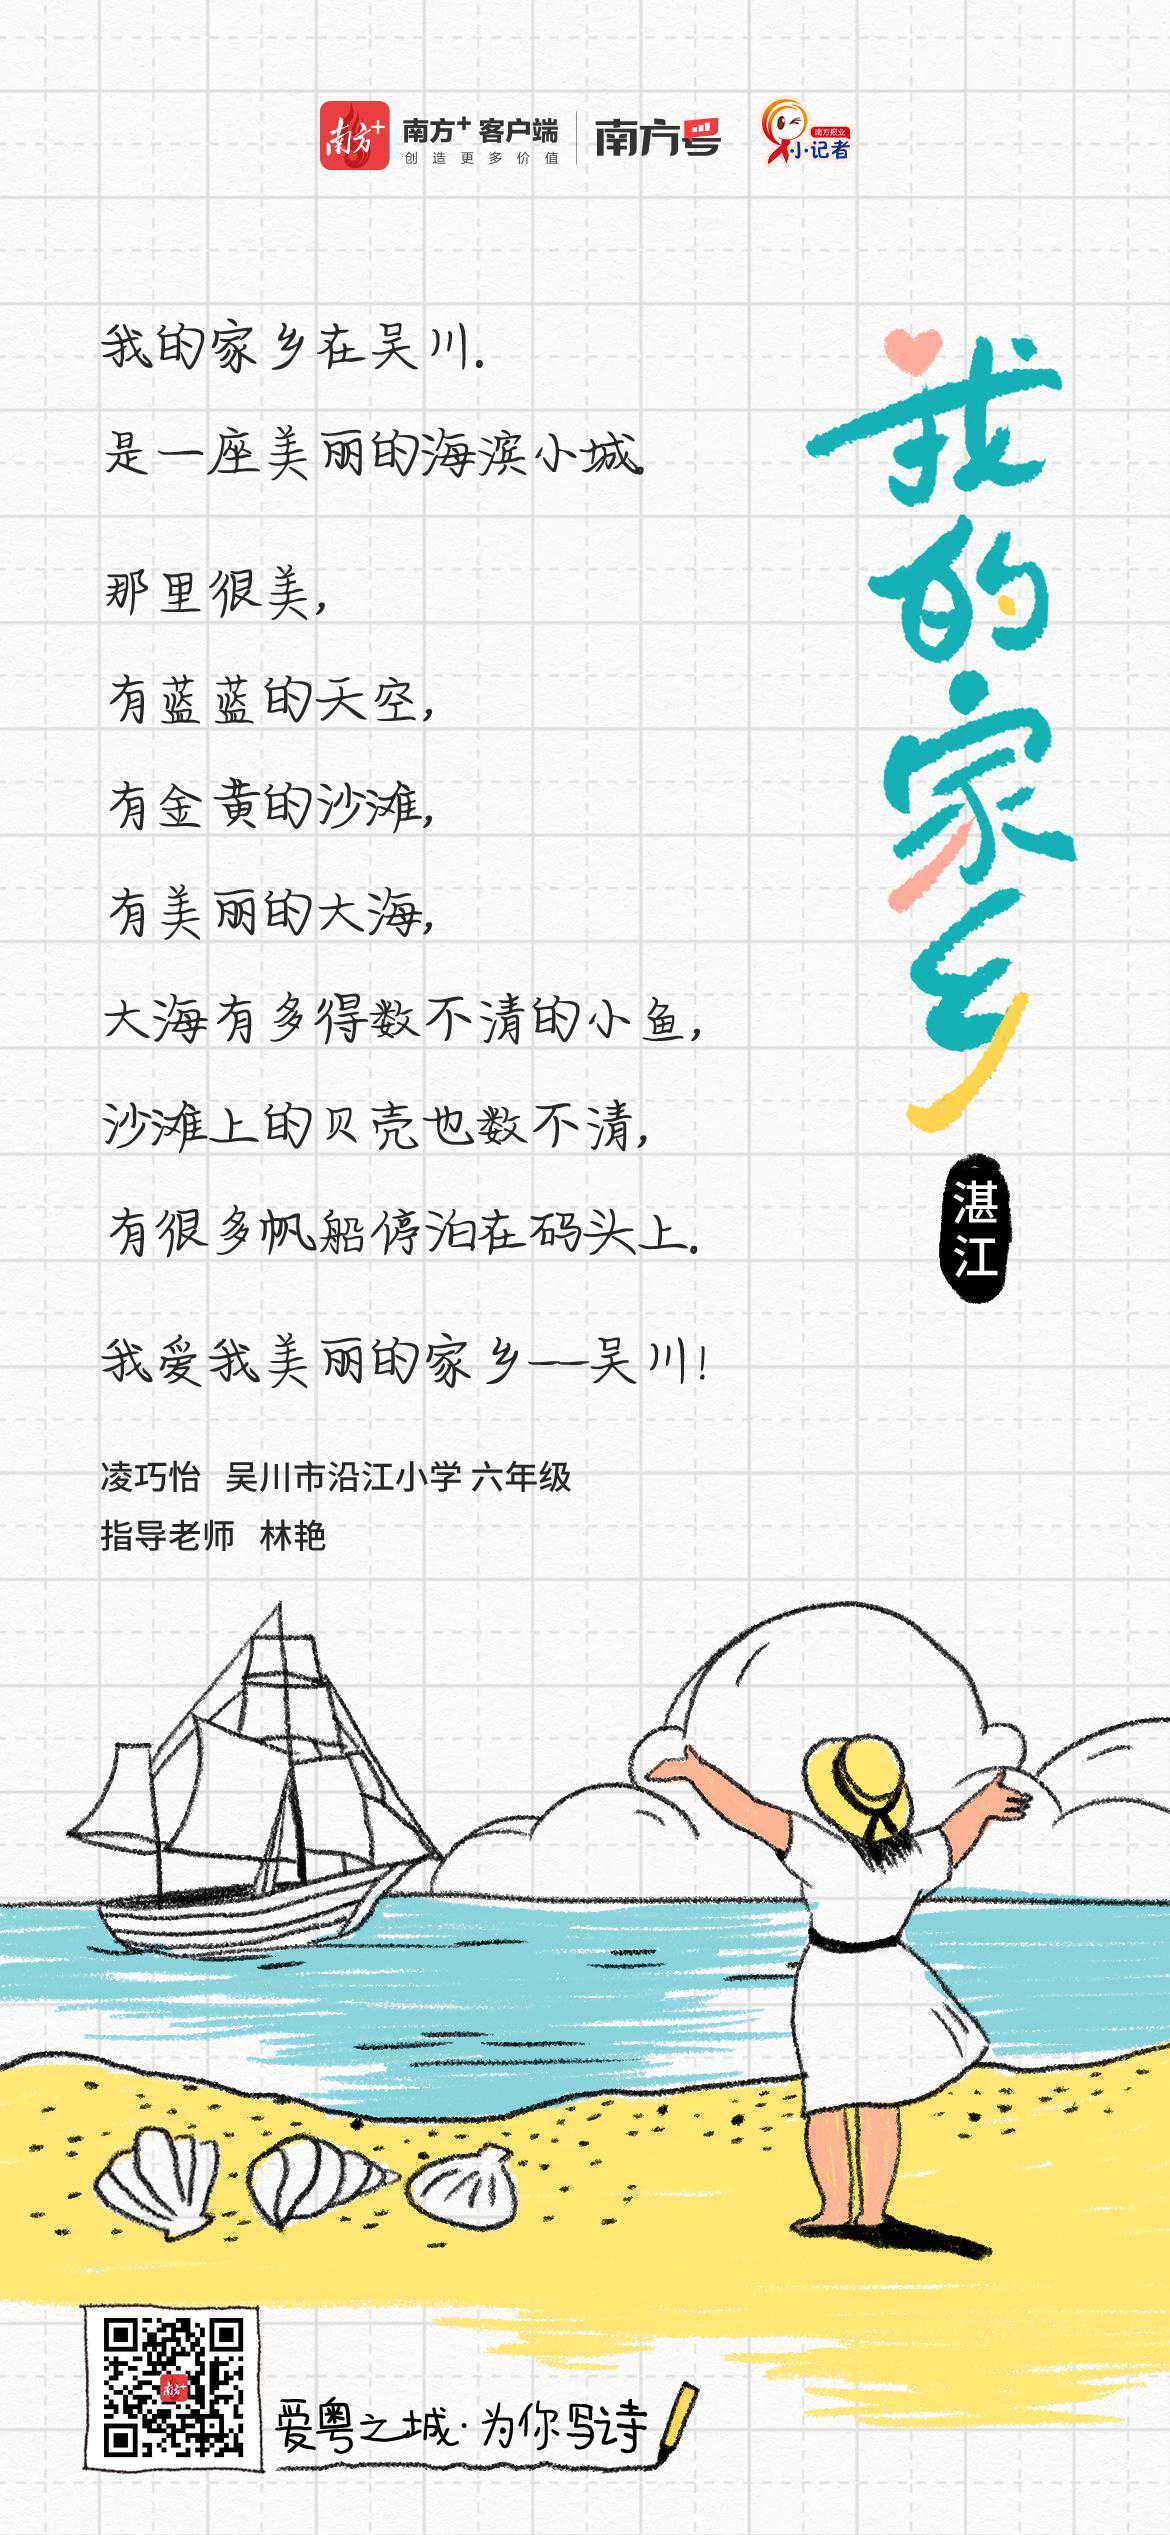 南方+ 南方+ 客户端 南方号 南方报业
创造更多价值 小记者
我的家乡
湛江
我的家乡在吴川.
是一座美丽的海滨小城。
那里很美,
有蓝蓝的天空,
有金黄的沙滩,
有美丽的大海,
大海有多得数不清的小鱼,
沙滩上的贝壳也数不清,
有很多帆船停泊在码头上.
我爱我美丽的家乡——吴川!
凌巧怡 吴川市沿江小学 六年级
指导老师 林艳
南方+
爱粤之城·为你写诗